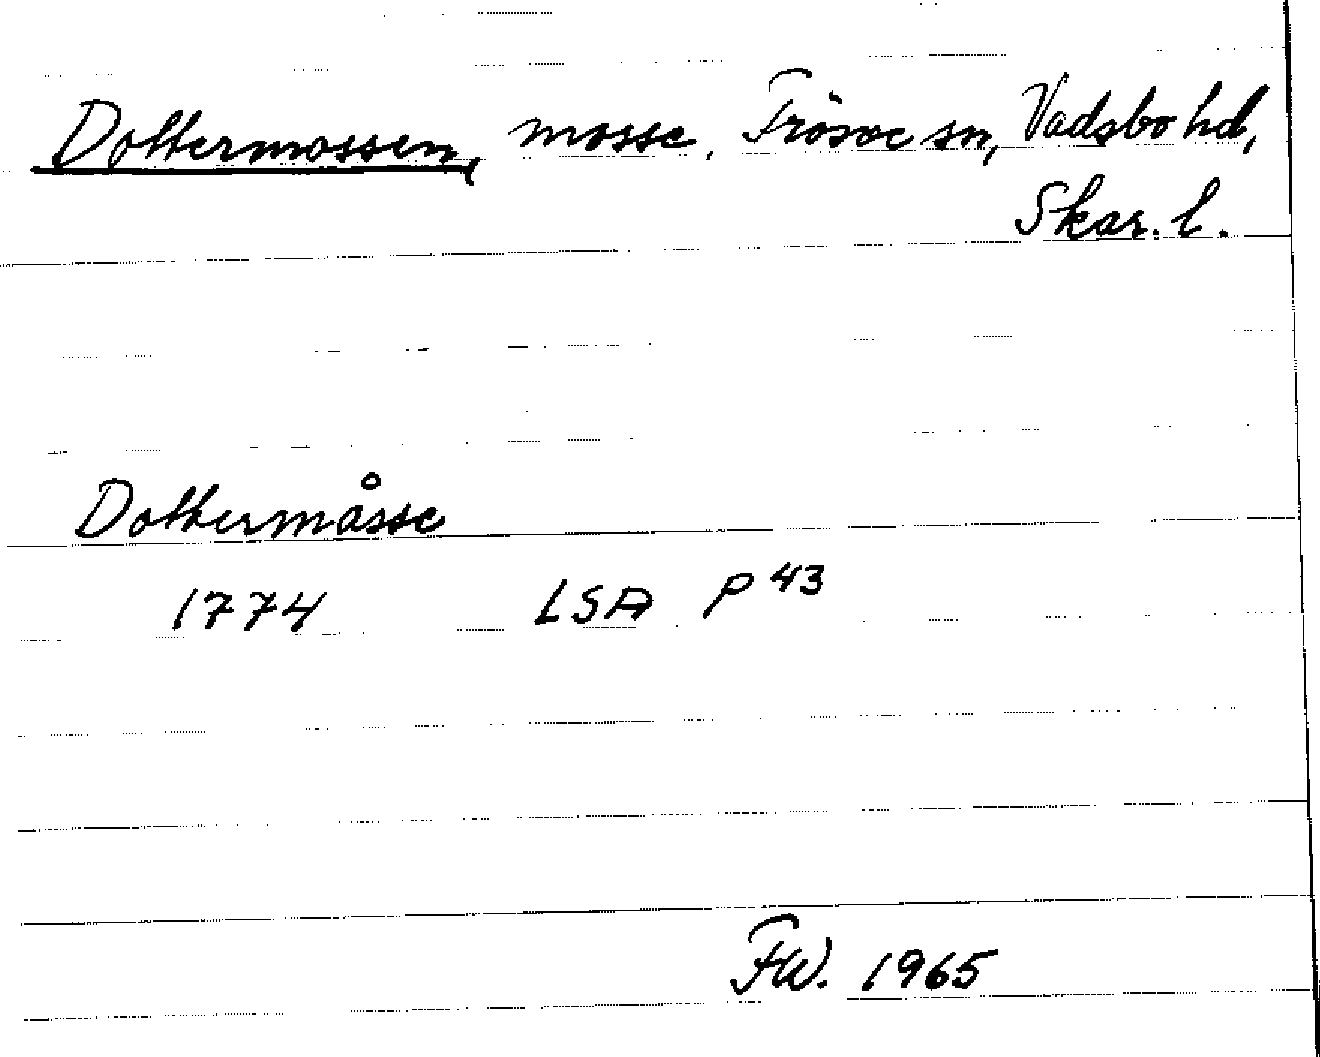 Dottermossen, mosse, Frösve sn, Vadsbo hd,
Skar. l.
Dottermåsse
1774 LSA P 43
FW. 1965